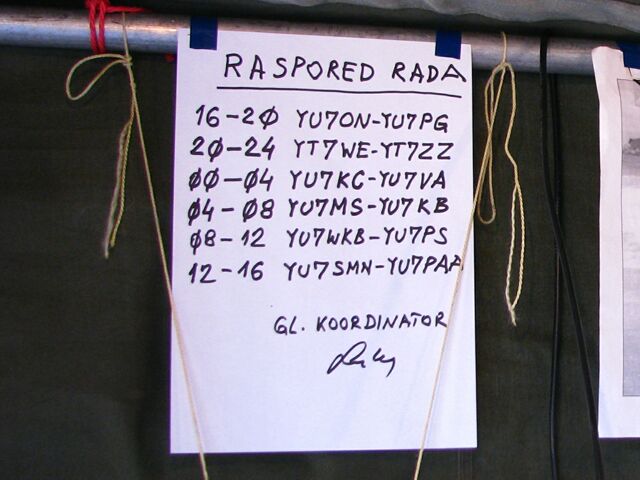 RASPORED RADA
16-2Ø YU7ON-YU7PG
2Ø-24 YT7WE-YT7ZZ
ØØ-Ø4 YU7KC-YU7VA
Ø4-Ø8 YU7MS-YU7KB
Ø8-12 YU7WKB-YU7PS
12-16 YU7SMN-YU7PAA
GL. KOORDINATOR